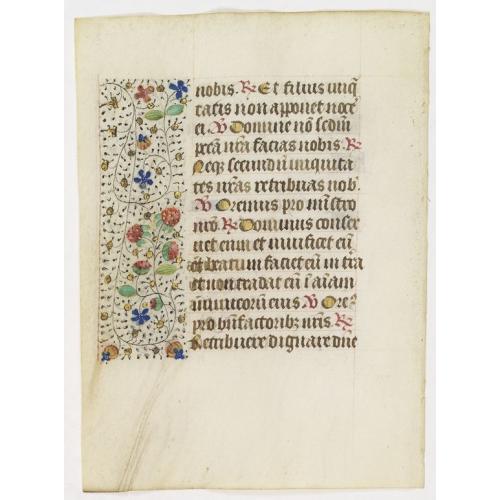 nobis. R Et filius iniq̃
tatis non apponet noce
ei V Domine nõ scđm
pccã nr̃a facias nobis. R
Neq; secundũ iniquita
tes nr̃as retribuas nob.
V Oremus pro nr̃stro
nr̃o. R Dominus conser
uet eum et viuificet eũ
et beatum faciet eũ in t̃ra
et non tradat eũ ĩ aĩam
inimicorũ eius V Ore
pro bñfactorib; nr̃is R
Retribuere dignare dñe